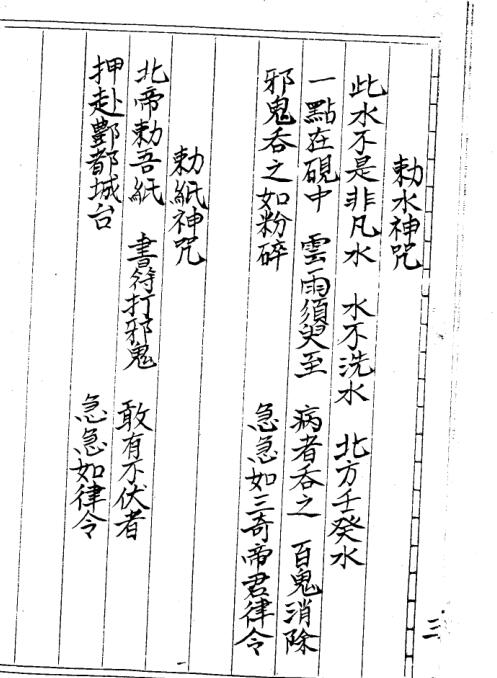 勅水神咒
此水不是非凡水 水不洗水 北方壬癸水
一點在硯中 雲雨須臾至 病者吞之 百鬼消除
邪鬼吞之如粉碎 急急如三奇帝君律令
勅紙神咒
北帝勅吾紙 書符打邪鬼 敢有不伏者
押赴酆都城台 急急如律令
三